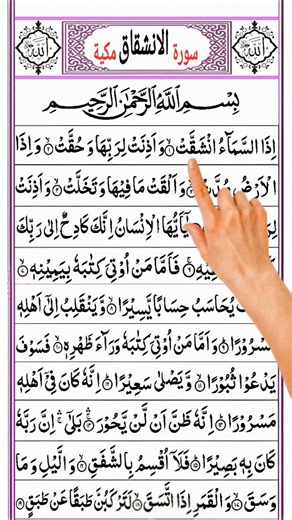 الله
سورة الانشقاق مكية
الله
بِسْمِ اللهِ الرَّحْمٰنِ الرَّحِيْمِ
اِذَا السَّمَآءُ انْشَقَّتْ ۙ۱ وَ اَذِنَتْ لِرَبِّهَا وَ حُقَّتْ ۙ۲ وَ اِذَا
الْاَرْضُ مُدَّتْ ۙ۳ وَ اَلْقَتْ مَا فِيْهَا وَ تَخَلَّتْ ۙ۴ وَ اَذِنَتْ
يٰۤاَيُّهَا الْاِنْسَانُ اِنَّكَ كَادِحٌ اِلٰى رَبِّكَ
۶ فَاَمَّا مَنْ اُوْتِيَ كِتٰبَهٗ بِيَمِيْنِهٖ ۙ۷
يُحَاسَبُ حِسَابًا يَّسِيْرًا ۙ۸ وَّ يَنْقَلِبُ اِلٰۤى اَهْلِهٖ
مَسْرُوْرًا ؕ۹ وَ اَمَّا مَنْ اُوْتِيَ كِتٰبَهٗ وَرَآءَ ظَهْرِهٖ ۙ۱۰ فَسَوْفَ
يَدْعُوْا ثُبُوْرًا ۙ۱۱ وَّ يَصْلٰى سَعِيْرًا ؕ۱۲ اِنَّهٗ كَانَ فِيْۤ اَهْلِهٖ
مَسْرُوْرًا ؕ۱۳ اِنَّهٗ ظَنَّ اَنْ لَّنْ يَّحُوْرَ ۚۛ۱۴ بَلٰۤى ۚۛ اِنَّ رَبَّهٗ
كَانَ بِهٖ بَصِيْرًا ؕ۱۵ فَلَاۤ اُقْسِمُ بِالشَّفَقِ ۙ۱۶ وَ الَّيْلِ وَ مَا
وَسَقَ ۙ۱۷ وَ الْقَمَرِ اِذَا اتَّسَقَ ۙ۱۸ لَتَرْكَبُنَّ طَبَقًا عَنْ طَبَقٍ ؕ۱۹